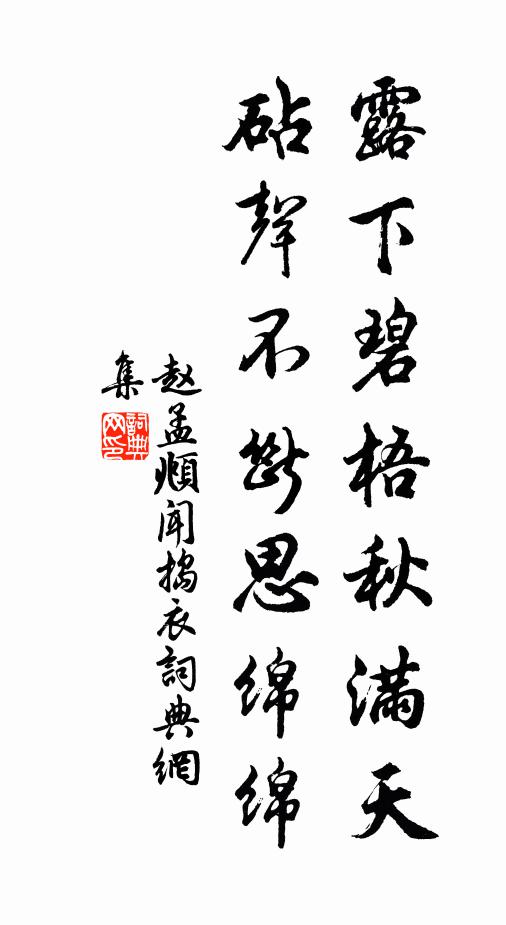 露下碧梧秋满天
砧聲不斷思绵绵
赵孟頫闻搗衣詞典網
集
詞典
网印